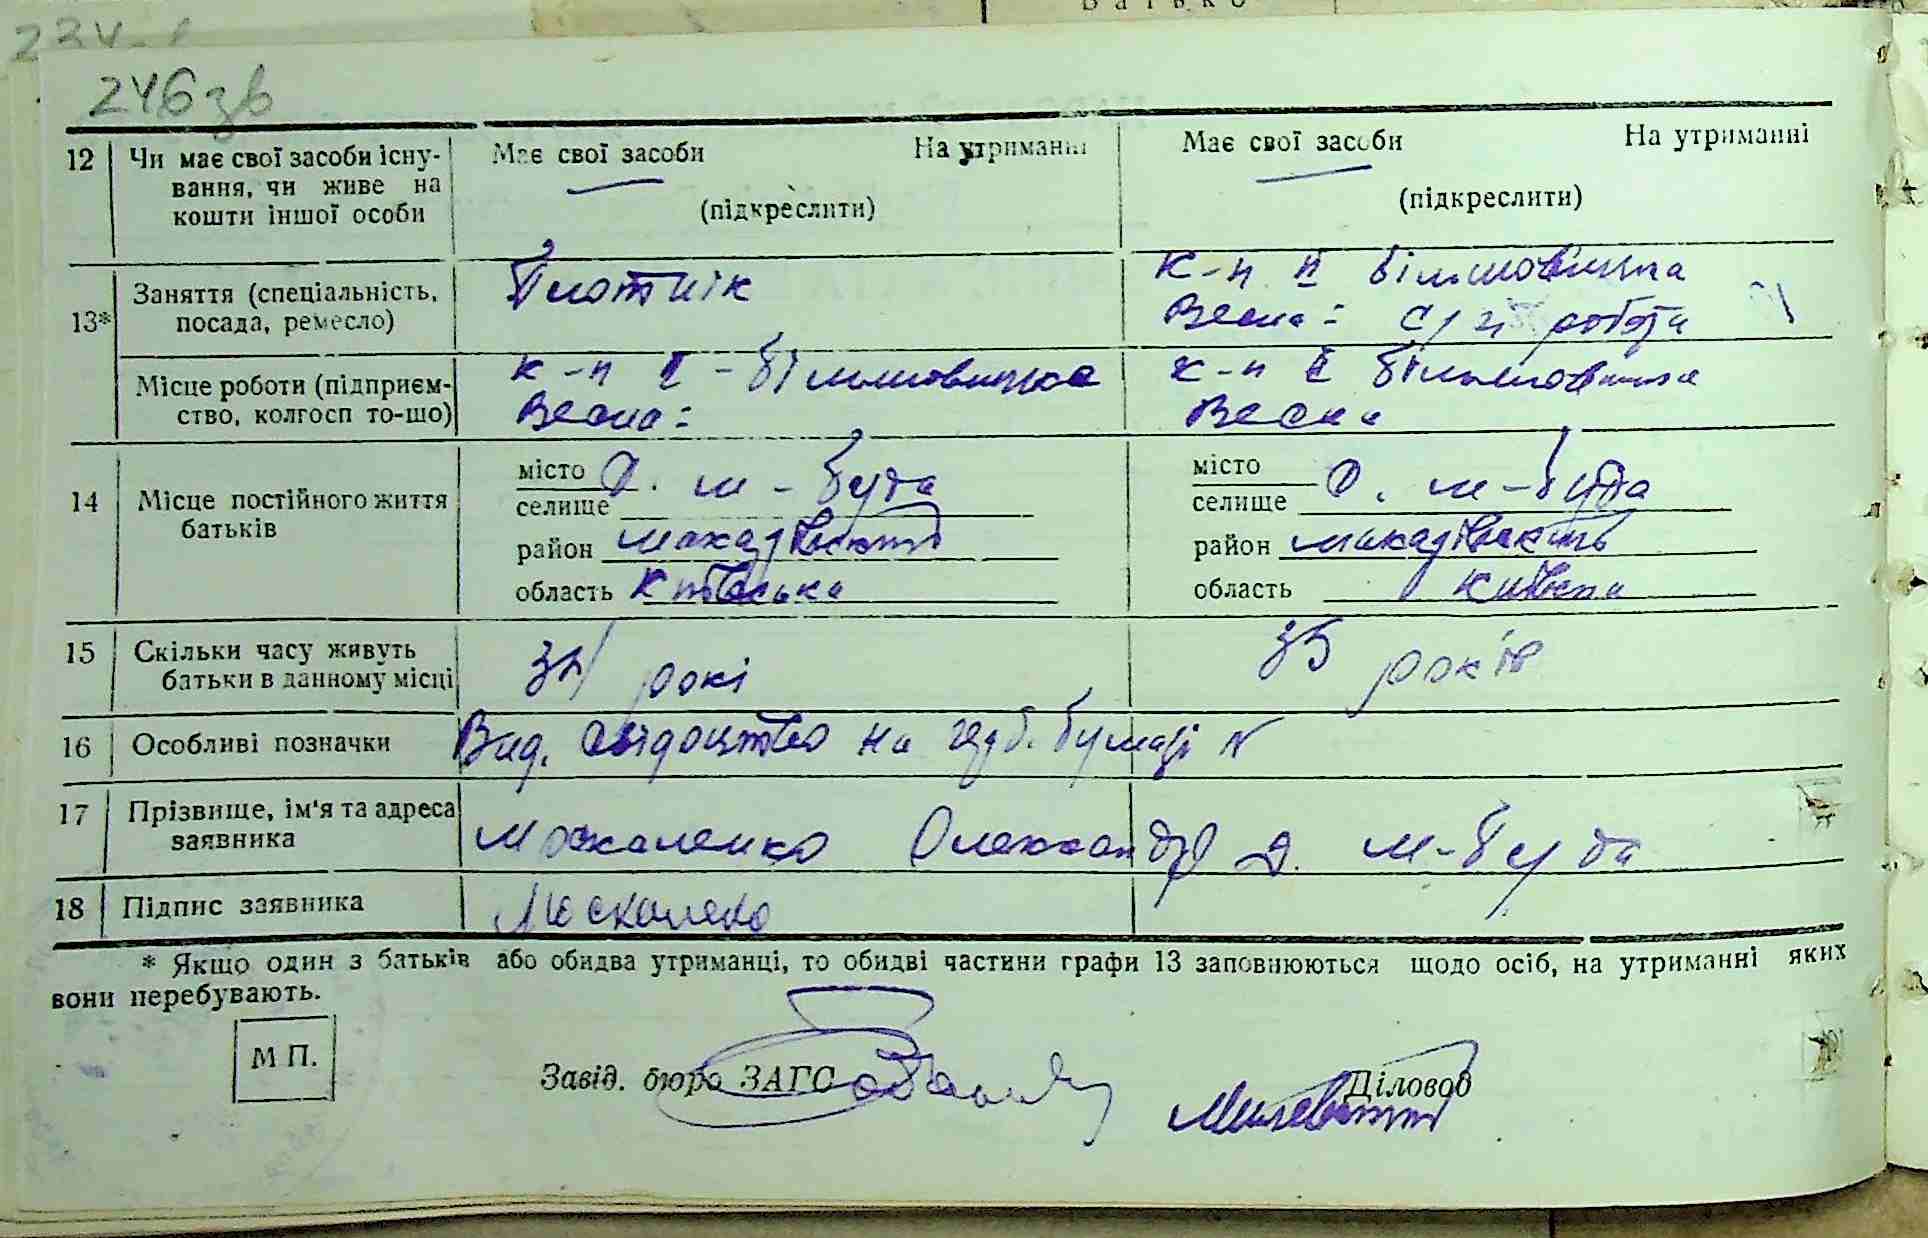 246 зв
12 Чи має свої засоби існу- Має свої засоби На утриманні Має свої засоби На утриманні
вання, чи живе на
кошти іншої особи (підкреслити) (підкреслити)
13* Заняття (спеціальність, Плотнік к-п ІІ більшовицька
посада, ремесло) Весна: с/г робота
Місце роботи (підприєм- к-п ІІ - більшовицька к-п ІІ більшовицька
ство, колгосп то-що) Весна: Весна
14 Місце постійного життя місто с. м - буда місто с. м - буда
батьків селище селище
район макарівський район макарівський
область Київська область Київська
15 Скільки часу живуть років 35 років
батьки в данному місці
16 Особливі позначки Вид. свідоцтво на бумазі N
17 Прізвище, ім'я та адреса Москаленко Олександр с. м-буда
заявника
18 Підпис заявника Москаленко
* Якщо один з батьків або обидва утриманці, то обидві частини графи 13 заповнюються щодо осіб, на утриманні яких
вони перебувають.
М П.
Завід. бюро ЗАГС Діловод